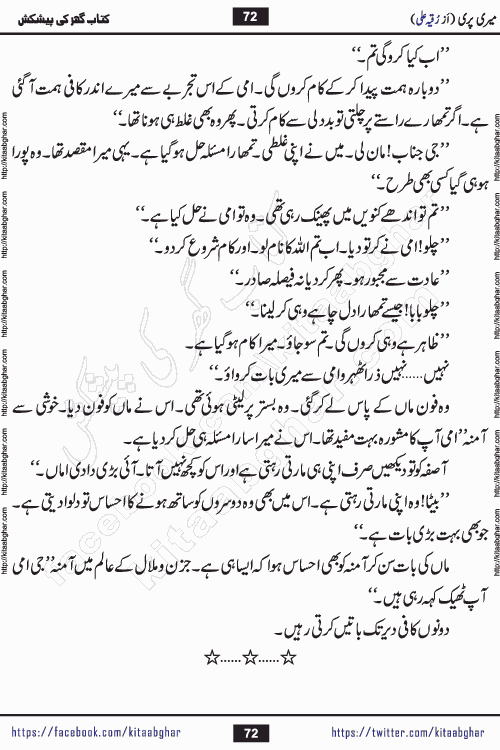 کتاب گھر کی پیشکش
72
میری پری (از رُقیہ علی)
’’اب کیا کرو گی تم۔‘‘
’’دوبارہ ہمت پیدا کر کے کام کروں گی۔ امی کے اس تجربے سے میرے اندر کافی ہمت آ گئی
ہے۔ اگر تمھارے راستے پر چلتی تو بددلی سے کام کرتی۔ پھر وہ بھی غلط ہی ہونا تھا۔‘‘
’’جی جناب! مان لی۔ میں نے اپنی غلطی۔ تمھارا مسئلہ حل ہو گیا ہے۔ یہی میرا مقصد تھا۔ وہ پورا
ہو ہی گیا کسی بھی طرح۔‘‘
’’تم تو اندھے کنویں میں پھینک رہی تھی۔ وہ تو امی نے حل کیا ہے۔‘‘
’’چلو! امی نے کر تو دیا۔ اب تم اللہ کا نام لو۔ اور کام شروع کر دو۔‘‘
’’عادت سے مجبور ہو۔ پھر کر دیا نہ فیصلہ صادر۔‘‘
’’چلو بابا! جیسے تمھارا دل چاہے وہی کر لینا۔‘‘
’’ظاہر ہے وہی کروں گی۔ تم سو جاؤ۔ میرا کام ہو گیا ہے۔
نہیں......نہیں ذرا ٹھہرو امی سے میری بات کرواؤ۔‘‘
وہ فون ماں کے پاس لے کر گئی۔ وہ بستر پر لیٹی ہوئی تھی۔ اس نے ماں کو فون دیا۔ خوشی سے
آمنہ ’’امی آپ کا مشورہ بہت مفید تھا۔ اس نے میرا سارا مسئلہ ہی حل کر دیا ہے۔
آصفہ کو تو دیکھیں صرف اپنی ہی مارتی رہتی ہے اور اس کو کچھ نہیں آتا۔ آئی بڑی دادی اماں۔‘‘
’’بیٹا! وہ اپنی مارتی رہتی ہے۔ اس میں بھی وہ دوسروں کو ساتھ ہونے کا احساس تو دلوا دیتی ہے۔
جو بھی بہت بڑی بات ہے۔‘‘
ماں کی بات سن کر آمنہ کو بھی احساس ہوا کہ ایسا ہی ہے۔ حزن و ملال کے عالم میں آمنہ ’’جی امی
آپ ٹھیک کہہ رہی ہیں۔‘‘
دونوں کافی دیر تک باتیں کرتی رہیں۔
☆......☆......☆
http://kitaabghar.com
https://facebook.com/kitaabghar
72
https://twitter.com/kitaabghar